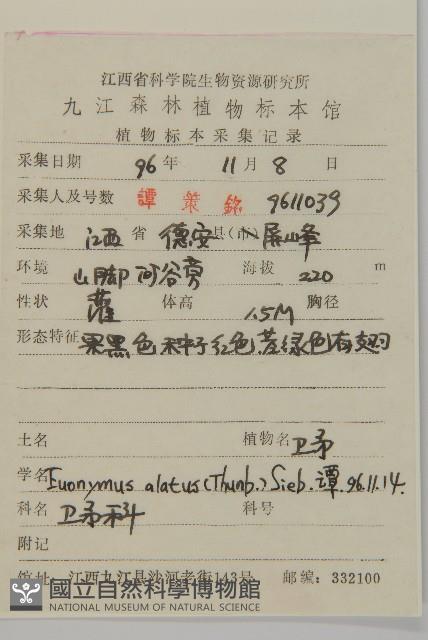 江西省科学院生物资源研究所
九江森林植物标本馆
植物标本采集记录
采集日期 96年 11月8日
采集人及号数 譚策铭 9611039
采集地 江西省 德安县(市) 屏山峰
环境 山脚河谷旁 海拔 220 m
性状 灌 体高 1.5M 胸径
形态特征 果黑色 种子红色 茎绿色有翅
土名 植物名 卫矛
学名 Euonymus alatus (Thunb.) Sieb. 譚 96.11.14.
科名 卫矛科 科号
附记
馆址: 江西九江县沙河老街143号 邮编: 332100
國立自然科學博物館
NATIONAL MUSEUM OF NATURAL SCIENCE